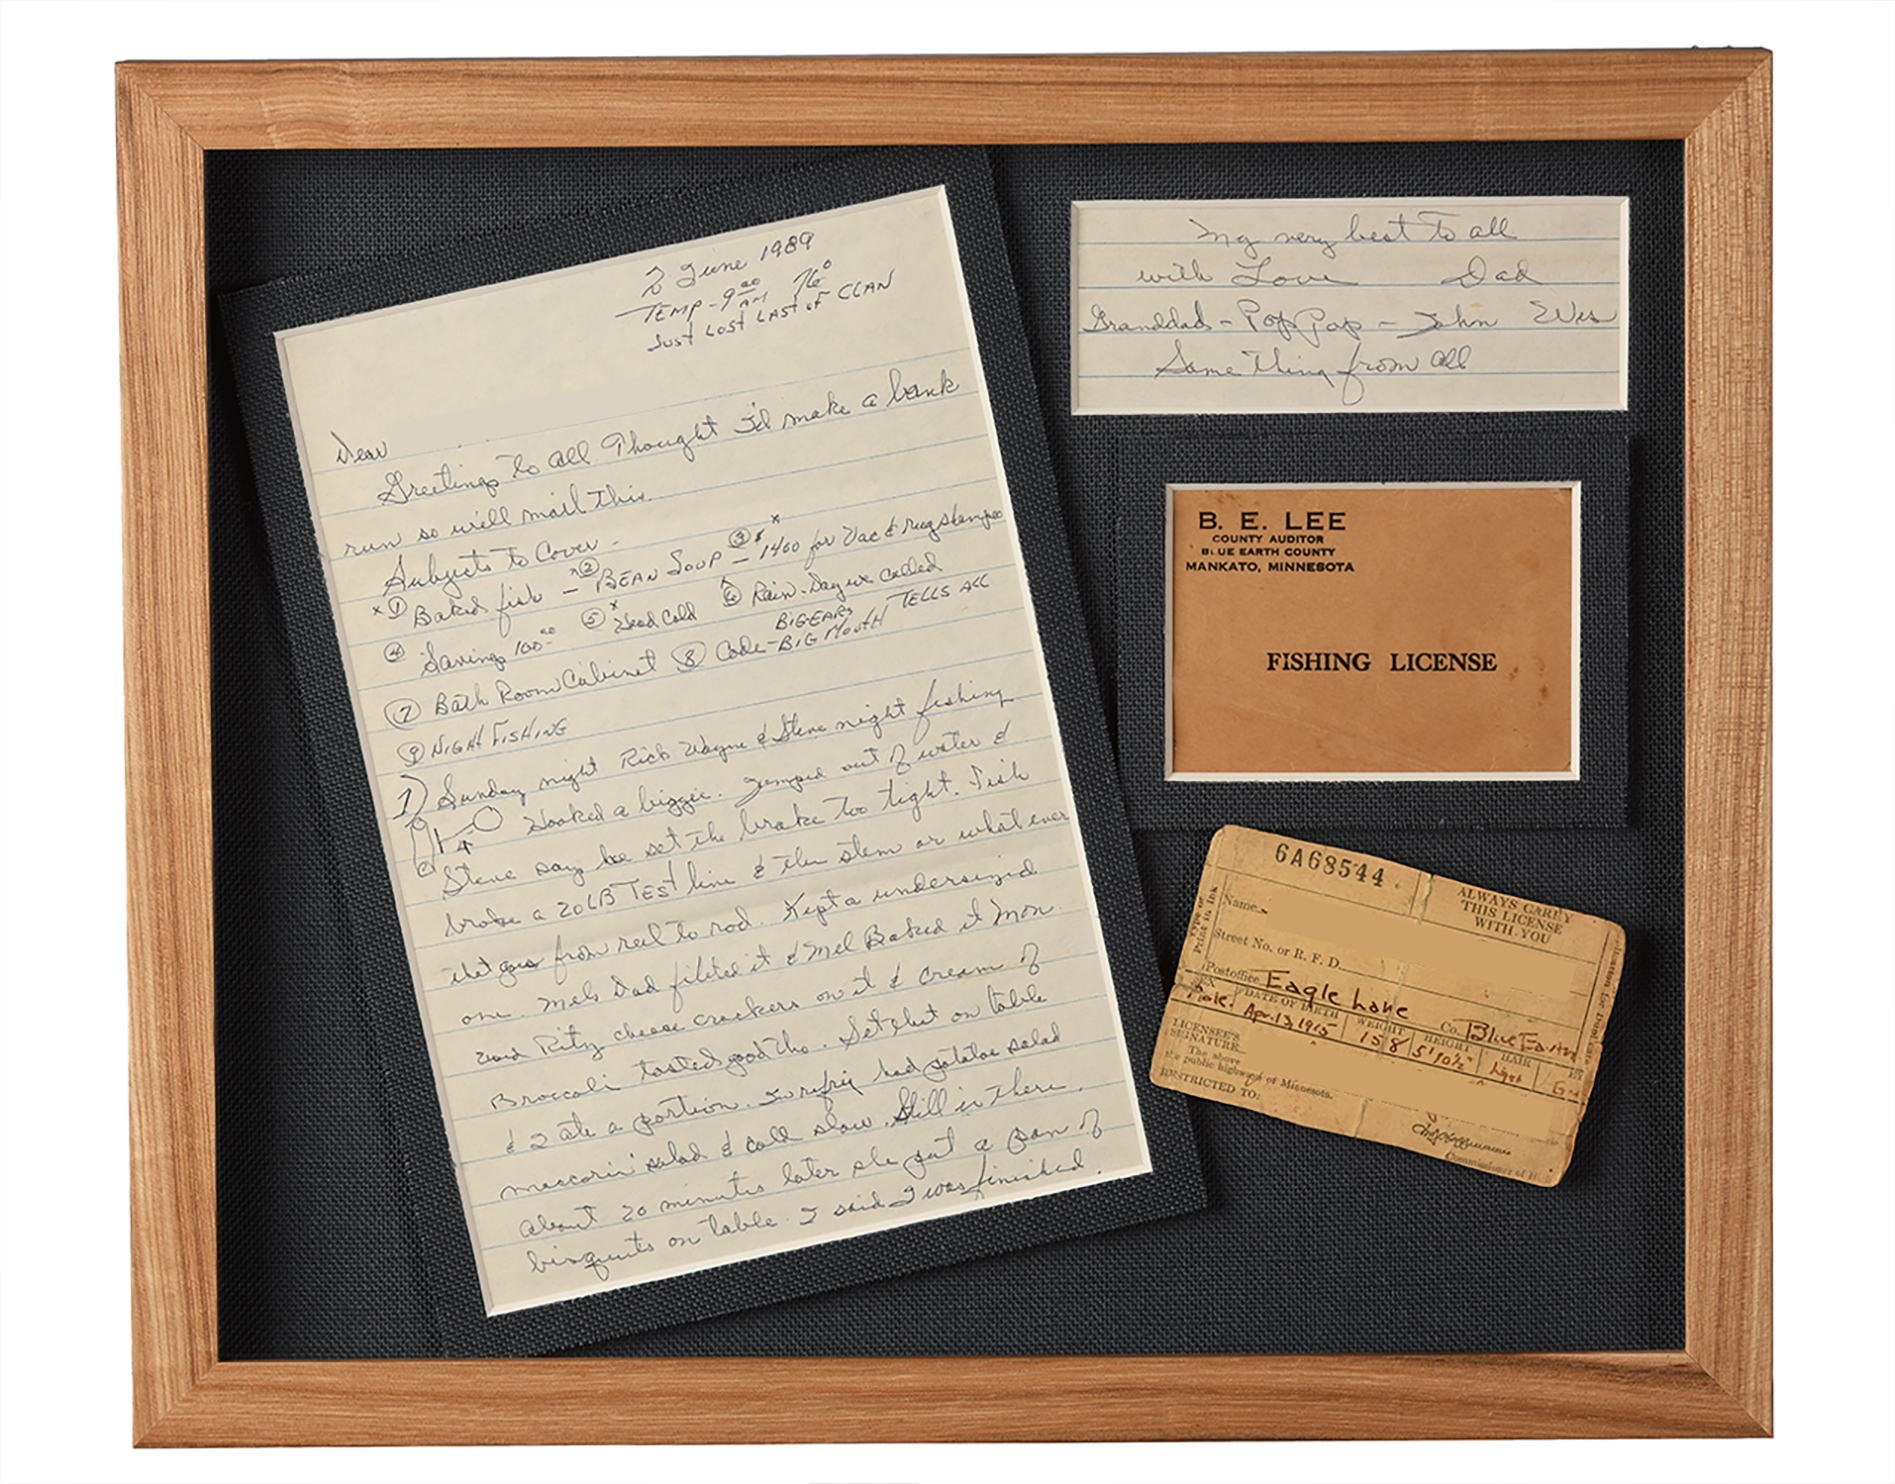 2 June 1989
TEMP - 9 00 AM 76°
JUST LOST LAST OF CLAN
Dear
Greetings to all. Thought I'd make a bank
run so we'll mail this.
Subjects to Cover -
x ① Baked fish - x② BEAN SOUP ③ x - 1400 for Vac & rug shampoo
④ Savings 100 00 ⑤ x Head Cold ⑥ Rain-Day we called
⑦ Bath Room Cabinet ⑧ Code - BIG-EARS BIG MOUTH TELLS ALL
⑨ NIGHT FISHING
1) Sunday night Rick Wayne & Steve night fishing
Hooked a biggie. Jumped out of water &
Steve say he set the brake too tight. Fish
broke a 20 LB TEST line & the stem or what ever
that goes from reel to rod. Kept a undersized
one. Mels Dad fileted it & Mel Baked it Mon.
used Ritz cheese crackers on it & cream of
Broccoli tasted good tho. Set that on table
& I ate a portion. In refrig had potatoe salad
maccorin salad & coll slaw. Still is there.
about 20 minutes later she put a pan of
bisquits on table. I said I was finished.
My very best to all
with Love Dad
Granddad - Pop Pop - John Wes
Same thing from all
B. E. LEE
COUNTY AUDITOR
BLUE EARTH COUNTY
MANKATO, MINNESOTA
FISHING LICENSE
6A68544
ALWAYS CARRY
THIS LICENSE
WITH YOU
Type or
Print in Ink
Name
Street No. or R. F. D.
Postoffice Eagle Lake Co. Blue Earth
SEX DATE OF BIRTH WEIGHT HEIGHT HAIR
Male Apr. 13, 1915 158 5'10½"
LICENSEE'S
SIGNATURE
The above
the public highways of Minnesota.
RESTRICTED TO:
Commissioner of